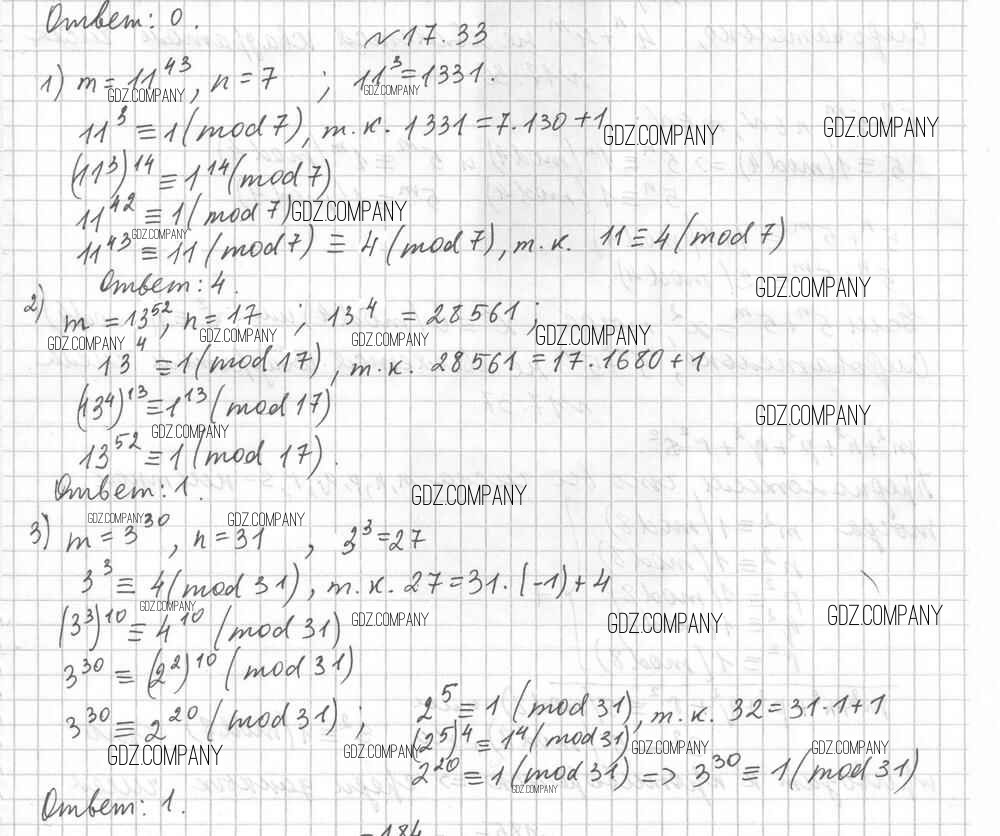 Ответ: 0.
№17.33
1) m = 11^43, n = 7 ; 11^3 = 1331.
GDZ.COMPANY GDZ.COMPANY
11^3 ≡ 1 (mod 7), т.к. 1331 = 7·130+1
GDZ.COMPANY GDZ.COMPANY
(11^3)^14 ≡ 1^14 (mod 7)
11^42 ≡ 1 (mod 7)
GDZ.COMPANY
GDZ.COMPANY
11^43 ≡ 11 (mod 7) ≡ 4 (mod 7), т.к. 11 ≡ 4 (mod 7)
Ответ: 4.
GDZ.COMPANY
2) m = 13^52, n = 17 ; 13^4 = 28561 ;
GDZ.COMPANY GDZ.COMPANY GDZ.COMPANY GDZ.COMPANY
13^4 ≡ 1 (mod 17), т.к. 28561 = 17·1680+1
(13^4)^13 ≡ 1^13 (mod 17)
GDZ.COMPANY
GDZ.COMPANY
13^52 ≡ 1 (mod 17).
Ответ: 1.
GDZ.COMPANY
GDZ.COMPANY GDZ.COMPANY
3) m = 3^30, n = 31 , 3^3 = 27
3^3 ≡ 4 (mod 31), т.к. 27 = 31·(-1)+4
GDZ.COMPANY
(3^3)^10 ≡ 4^10 (mod 31)
GDZ.COMPANY GDZ.COMPANY GDZ.COMPANY
3^30 ≡ (2^2)^10 (mod 31)
3^30 ≡ 2^20 (mod 31) ; 2^5 ≡ 1 (mod 31), т.к. 32 = 31·1+1
(2^5)^4 ≡ 1^4 (mod 31)
GDZ.COMPANY GDZ.COMPANY GDZ.COMPANY GDZ.COMPANY
2^20 ≡ 1 (mod 31) => 3^30 ≡ 1 (mod 31)
GDZ.COMPANY
Ответ: 1.